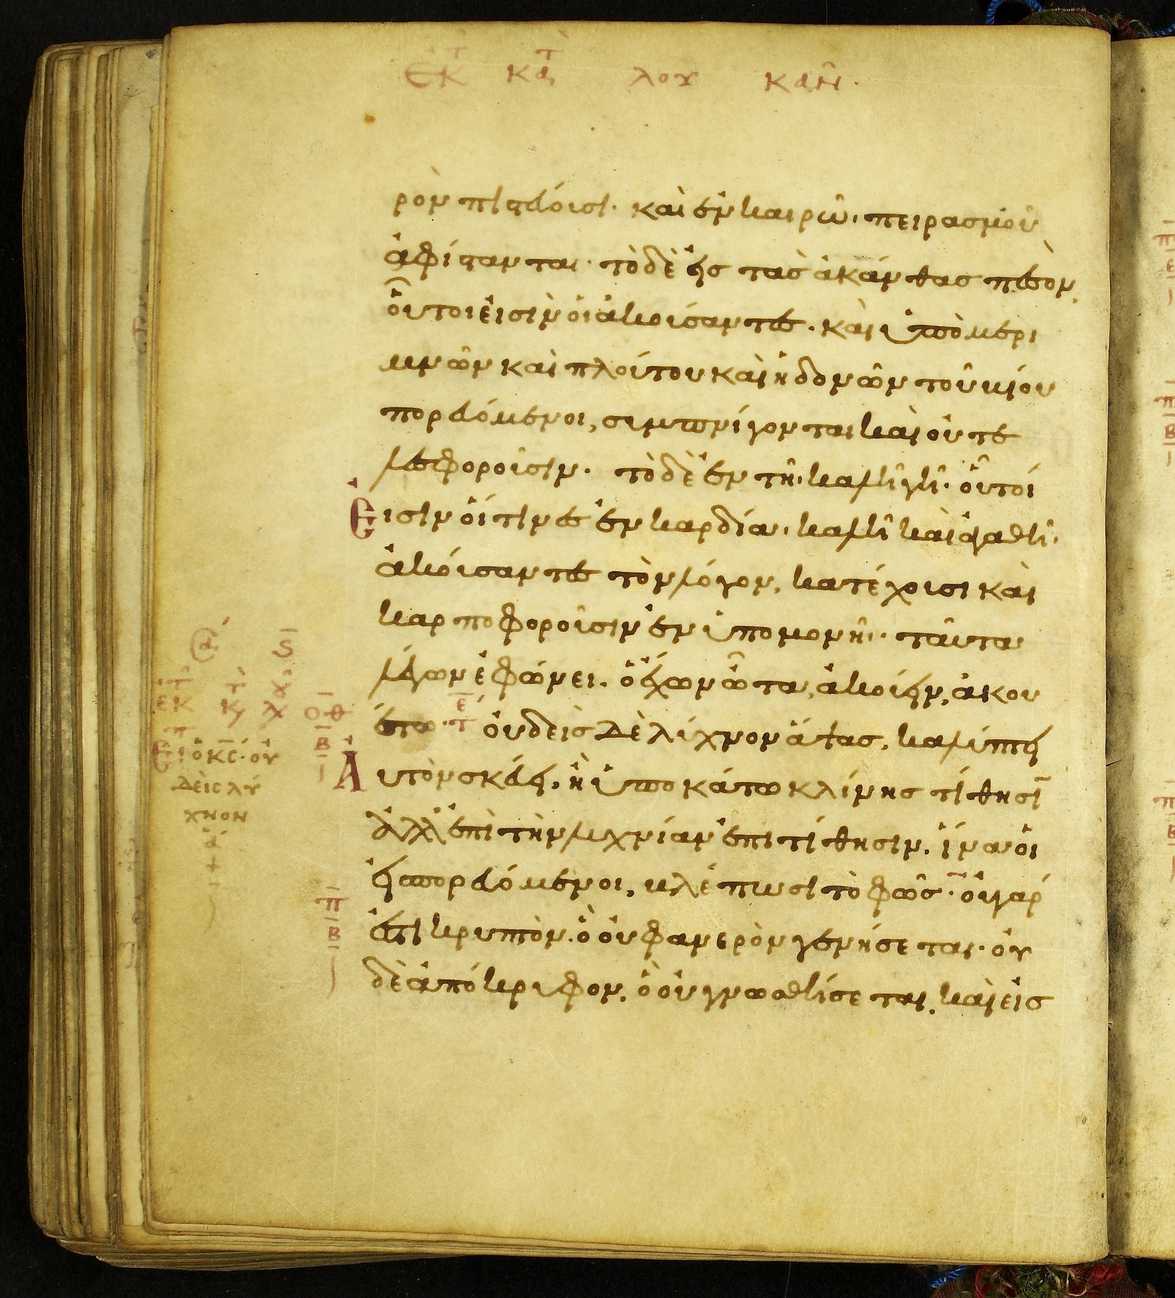 ἐκ κατ λου καν
ρὸν πιστεύουσι· καὶ ἐν καιρῶ· πειρασμοῦ
ἀφίστανται· τὸ δὲ εἰς τὰς ἀκάνθας πεσὸν,
οὗτοι εἰσὶν οἱ ἀκούσαντες· καὶ ὑπὸ μερι
μνῶν καὶ πλούτου καὶ ἡδονῶν τοῦ βίου
πορευόμενοι, συμπνίγονται καὶ οὐ τε
λεσφοροῦσιν· τὸ δὲ ἐν τῆ· καλῆ γῆ· οὗτοί
εἰσιν οἵτινες ἐν καρδία· καλῆ καὶ ἀγαθῆ·
ἀκούσαντες τὸν λόγον, κατέχουσι καὶ
καρποφοροῦσιν ἐν ὑπομονῆ· ταῦτα
λέγων ἐφώνει· ὁ ἔχων ὦτα, ἀκούειν, ἀκου
έτω· οὐδεὶς δὲ λύχνον ἅψας, καλύπτει
αὐτὸν σκεύει, ἢ ὑποκάτω κλίνης τίθησῖ
ἀλλ ἐπὶ τὴν λυχνίαν ἐπιτίθησιν, ἵνα οἱ
εἰσπορευόμενοι, βλέπωσι τὸ φῶς· οὐ γάρ
ἐστι κρυπτὸν. ὃ οὐ φανερὸν γενήσεται· οὐ
δὲ ἀπόκρυφον, ὃ οὐ γνωσθήσεται, καὶ εἰς
ϛ
οθ
β
εἶ ὁ κς· οὐ
δεὶς λύ
χνον
π
β